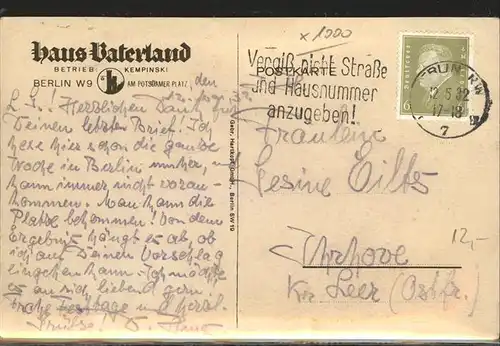 x 1000
Haus Vaterland
BETRIEB: KEMPINSKI
BERLIN W9 AM POTSDAMER PLATZ
den
L. G.! Herzlichen Dank für
Deinen letzten Brief! Ich
hetze hier schon die ganze
Woche in Berlin umher, und
kann immer nicht voran-
kommen. Man kann die
Platze bekommen! Von dem
Ergebnis hängt es ab, ob
ich auf Deinen Vorschlag
eingehen kann. Ich möchte
es an sich liebend gern.
Frohe Festtage und herzl.
Grüsse!
Gebr. Hartkopf GmbH., Berlin SW 19
Vergiß nicht Straße
POSTKARTE
und Hausnummer
anzugeben!
BERLIN NW
12.5.32
17-18
7
6
Fräulein
Gesine Eilts
Ihrhove
Kr. Leer (Ostfr.)
12,-